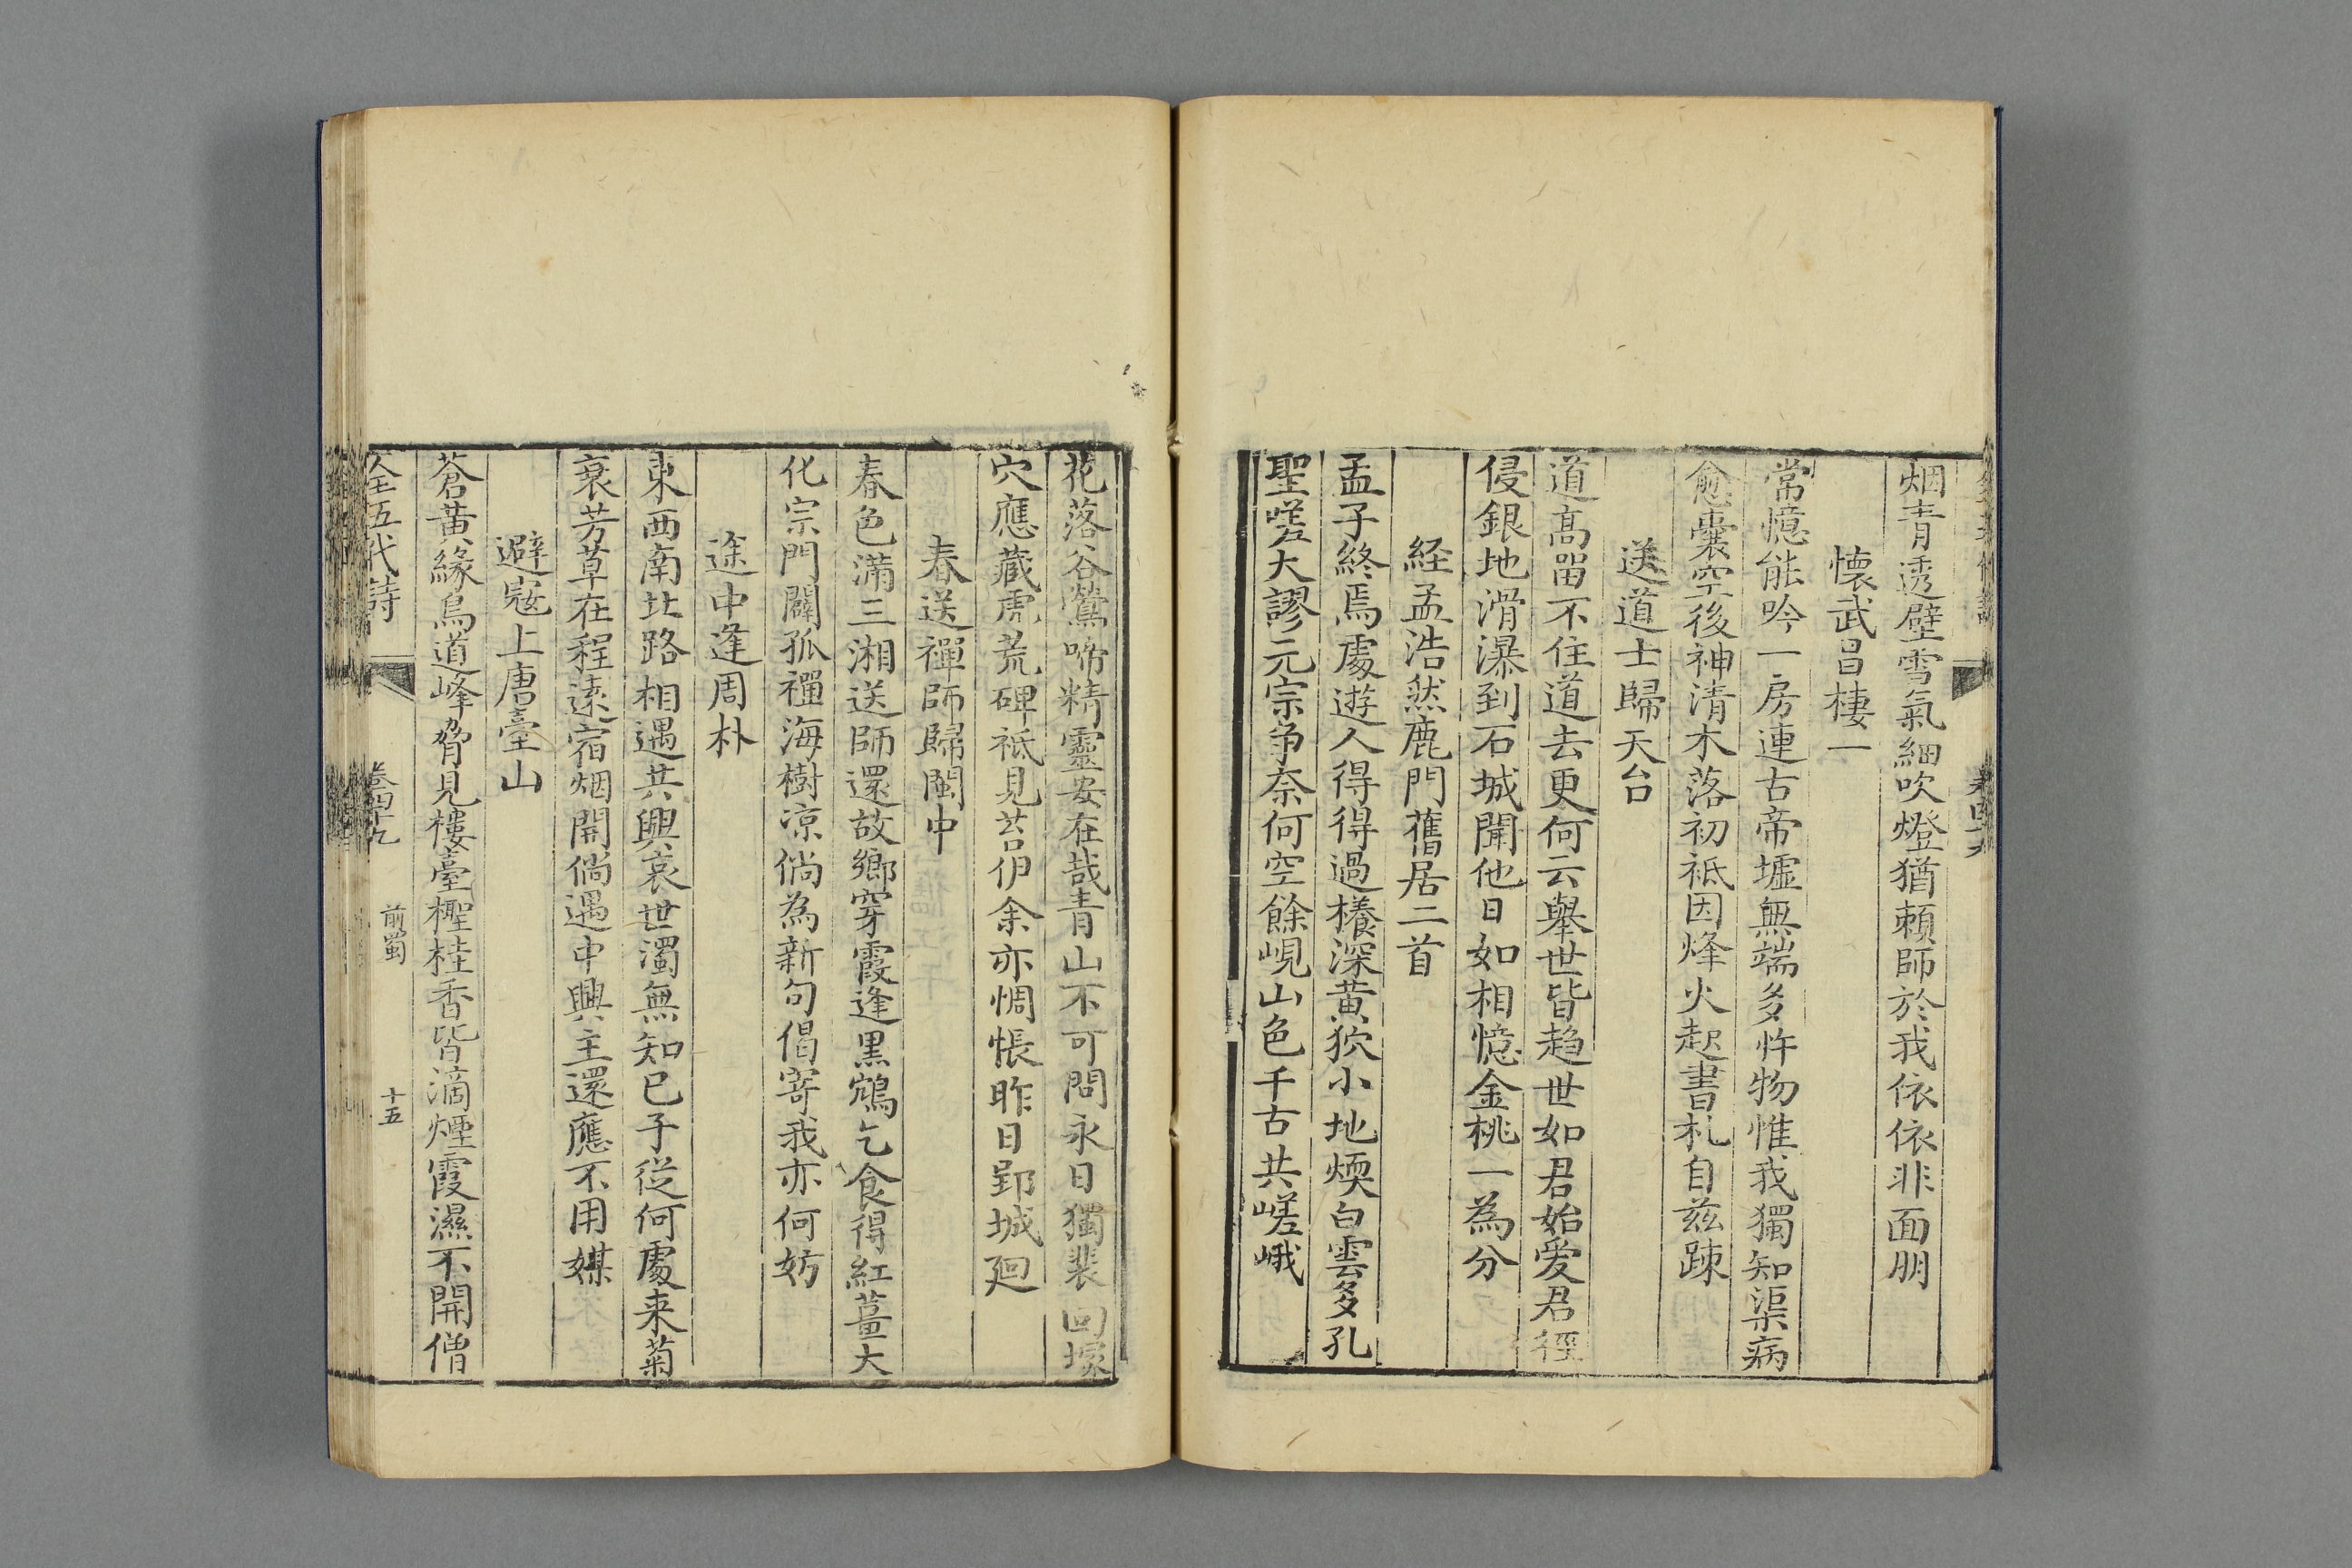 烟青透壁雪氣細吹燈猶賴師於我依依非面朋
懐武昌棲一
常憶能吟一房連古帝墟無端多忤物惟我獨知渠病
愈囊空後神清木落初祗因烽火起書札自茲踈
送道士歸天台
道高畱不住道去更何云舉世皆趋世如君始爱君徑
侵銀地滑瀑到石城聞他日如相憶金桃一為分
経孟浩然鹿門舊居二首
孟子終焉處遊人得得過櫹深黄狖小地煗白雲多孔
聖嗟大謬元宗争奈何空餘峴山色千古共嵯峨
花落谷鶯啼精靈安在哉青山不可問永日獨裴回塚
穴應藏虎荒碑祗見苔伊余亦惆悵昨日郢城廻
春送禪師歸閩中
春色滿三湘送師還故鄉穿霞逢黒鴆乞食得紅薑大
化宗門闢孤禪海樹凉倘為新句偈寄我亦何妨
途中逢周朴
東西南北路相遇共興哀世濁無知已子從何處来菊
衰芳草在程遠宿烟開倘遇中興主還應不用媒
避寇上唐臺山
蒼黄緣鳥道峰脅見樓臺檉桂香皆滴煙霞濕不開僧
全五代詩 卷四十九 前蜀 十五